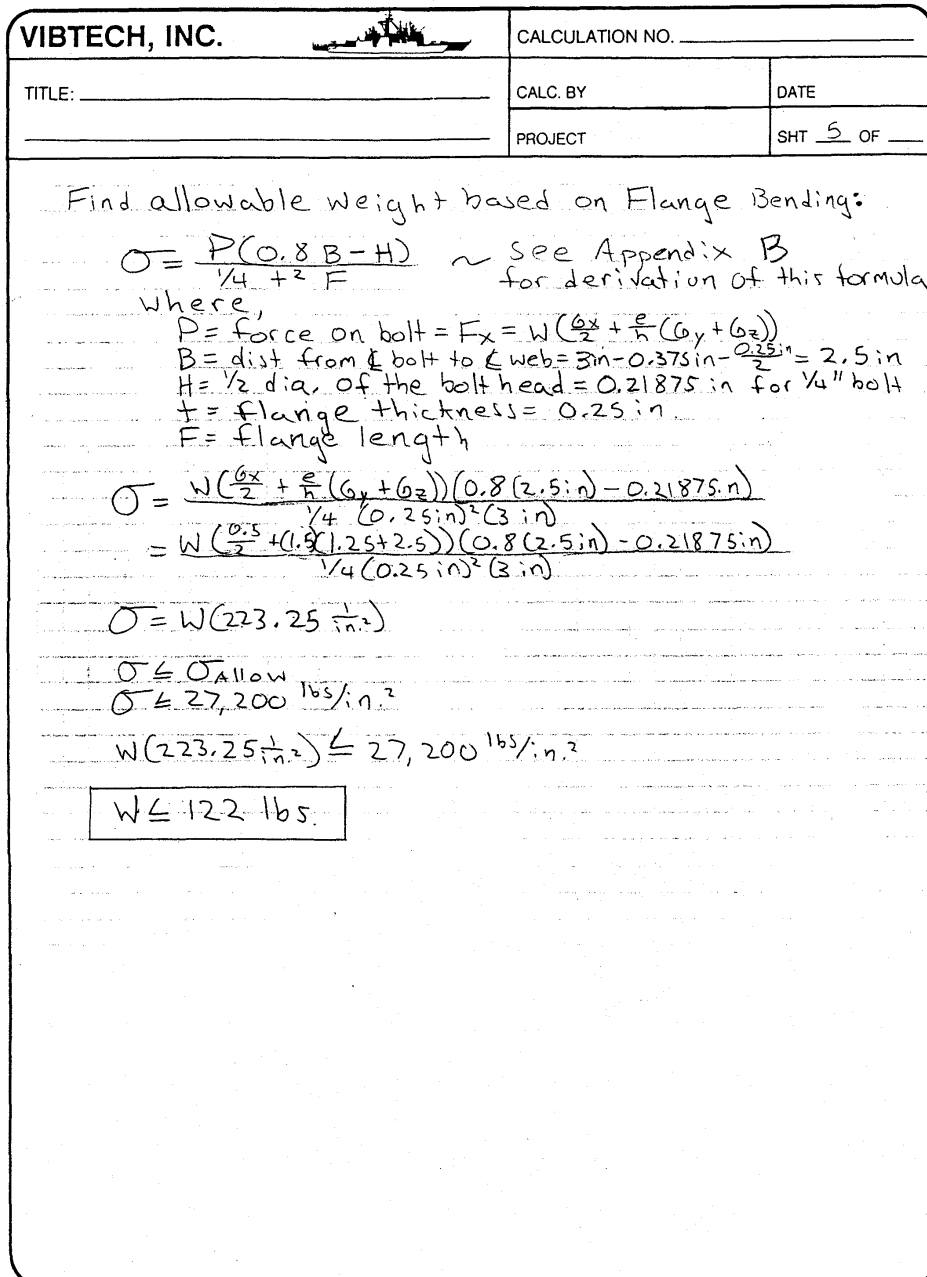 VIBTECH, INC.
CALCULATION NO.
TITLE:
CALC. BY
DATE
PROJECT
SHT 5 OF
Find allowable weight based on Flange Bending:
σ = P(0.8 B - H) / 1/4 t² F ~ see Appendix B
for derivation of this formula
where,
P = force on bolt = Fx = W(Gx/2 + e/h (Gy + Gz))
B = dist from ℄ bolt to ℄ web = 3in - 0.375in - 0.25in/2 = 2.5 in
H = 1/2 dia. of the bolt head = 0.21875 in for 1/4" bolt
t = flange thickness = 0.25 in.
F = flange length
σ = W(Gx/2 + e/h (Gy + Gz))(0.8(2.5in) - 0.21875in) / 1/4 (0.25in)² (3 in)
= W(0.5/2 + (1.5)(1.25+2.5))(0.8(2.5in) - 0.21875in) / 1/4 (0.25 in)² (3 in)
σ = W(223.25 1/in.²)
σ ≤ σAllow
σ ≤ 27,200 lbs/in.²
W(223.25 1/in.²) ≤ 27,200 lbs/in.²
W ≤ 122 lbs.